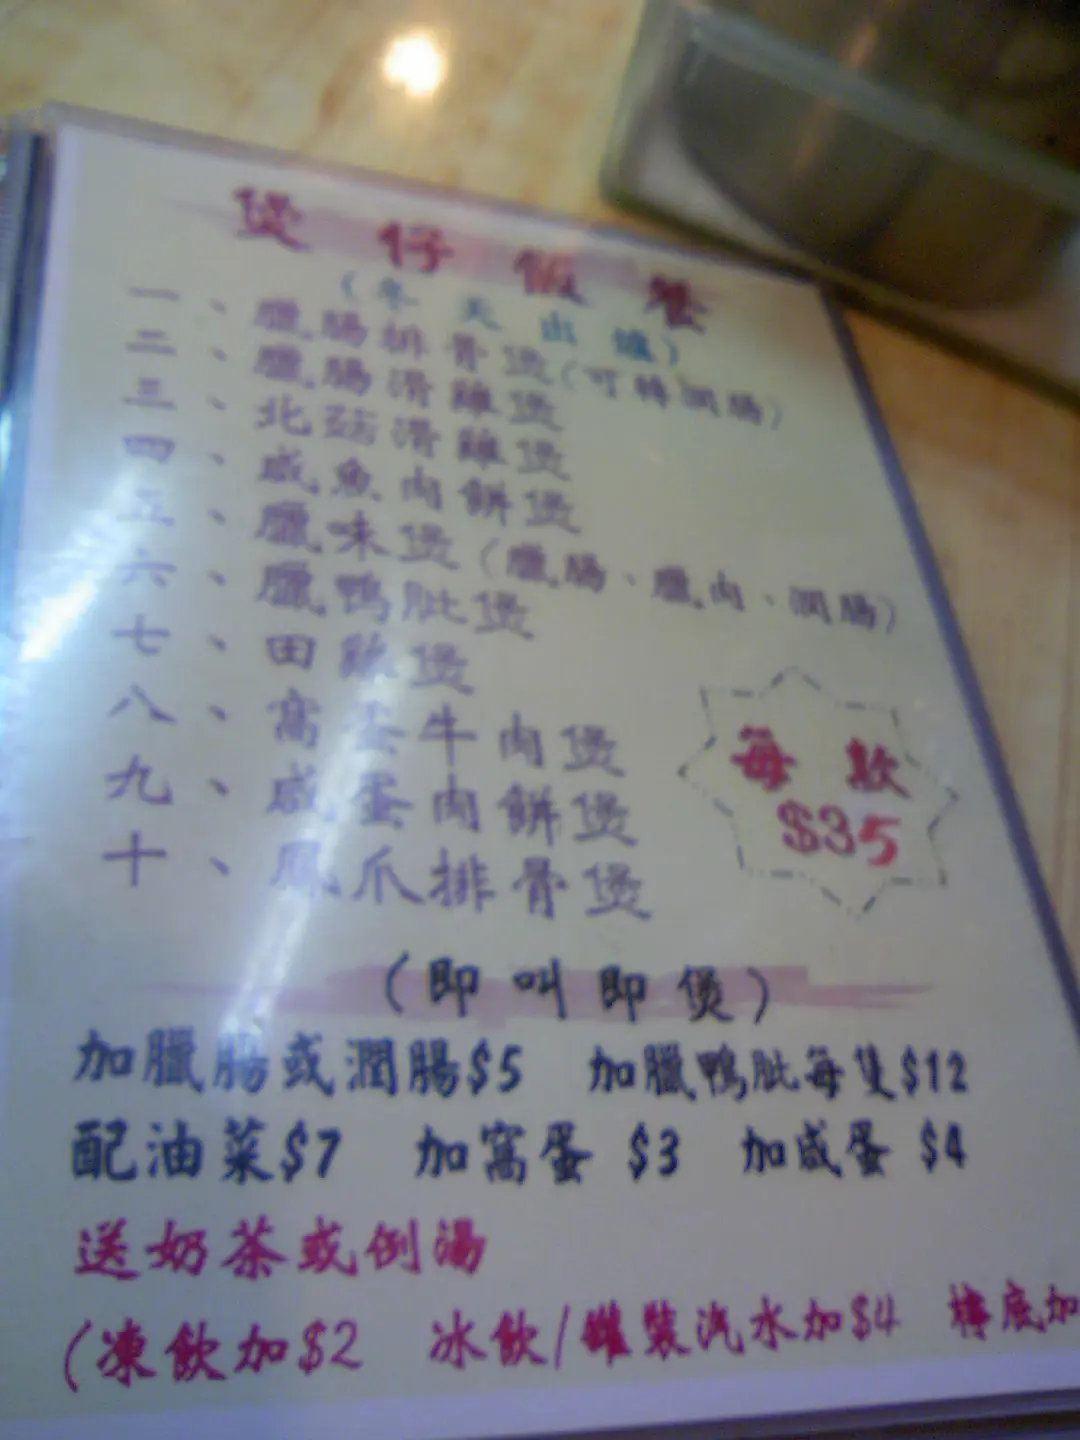 煲仔飯餐
(冬天出爐)
一、臘腸排骨煲(可轉潤腸)
二、臘腸滑雞煲
三、北菇滑雞煲
四、咸魚肉餅煲
五、臘味煲(臘腸、臘肉、潤腸)
六、臘鴨肶煲
七、田雞煲
八、窩蛋牛肉煲
九、咸蛋肉餅煲
十、鳳爪排骨煲
每款
$35
(即叫即煲)
加臘腸或潤腸$5 加臘鴨肶每隻$12
配油菜$7 加窩蛋 $3 加咸蛋 $4
送奶茶或例湯
(凍飲加$2 冰飲/罐裝汽水加$4 樽底加